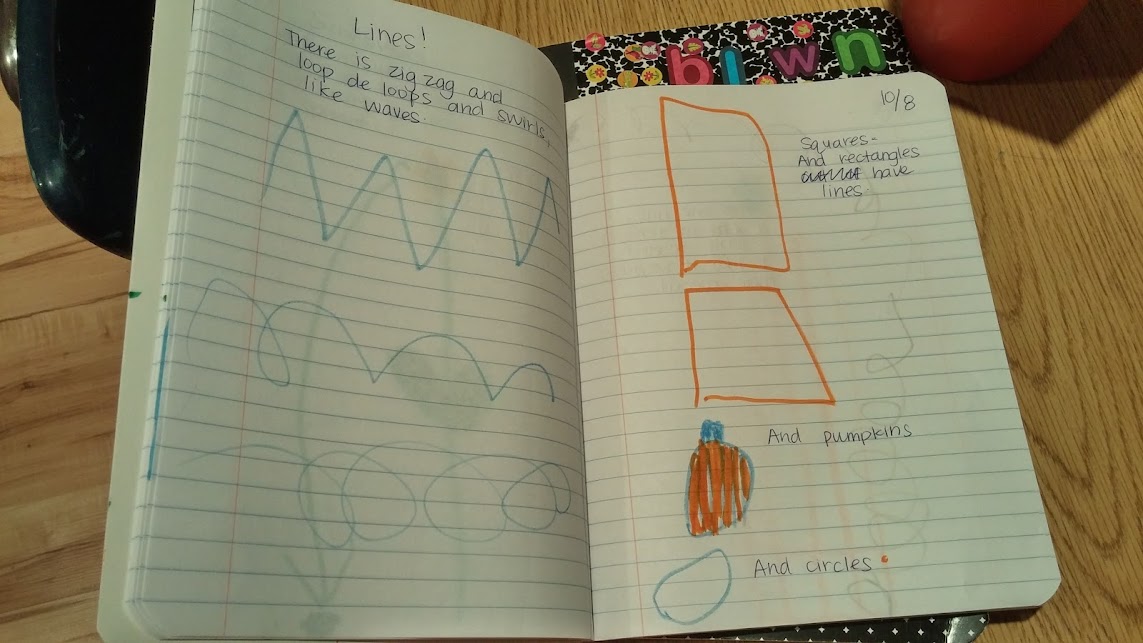 Lines!
There is zig zag and
loop de loops and swirls,
like waves.
blwn
10/8
Squares-
And rectangles
have
lines.
And pumpkins
And circles